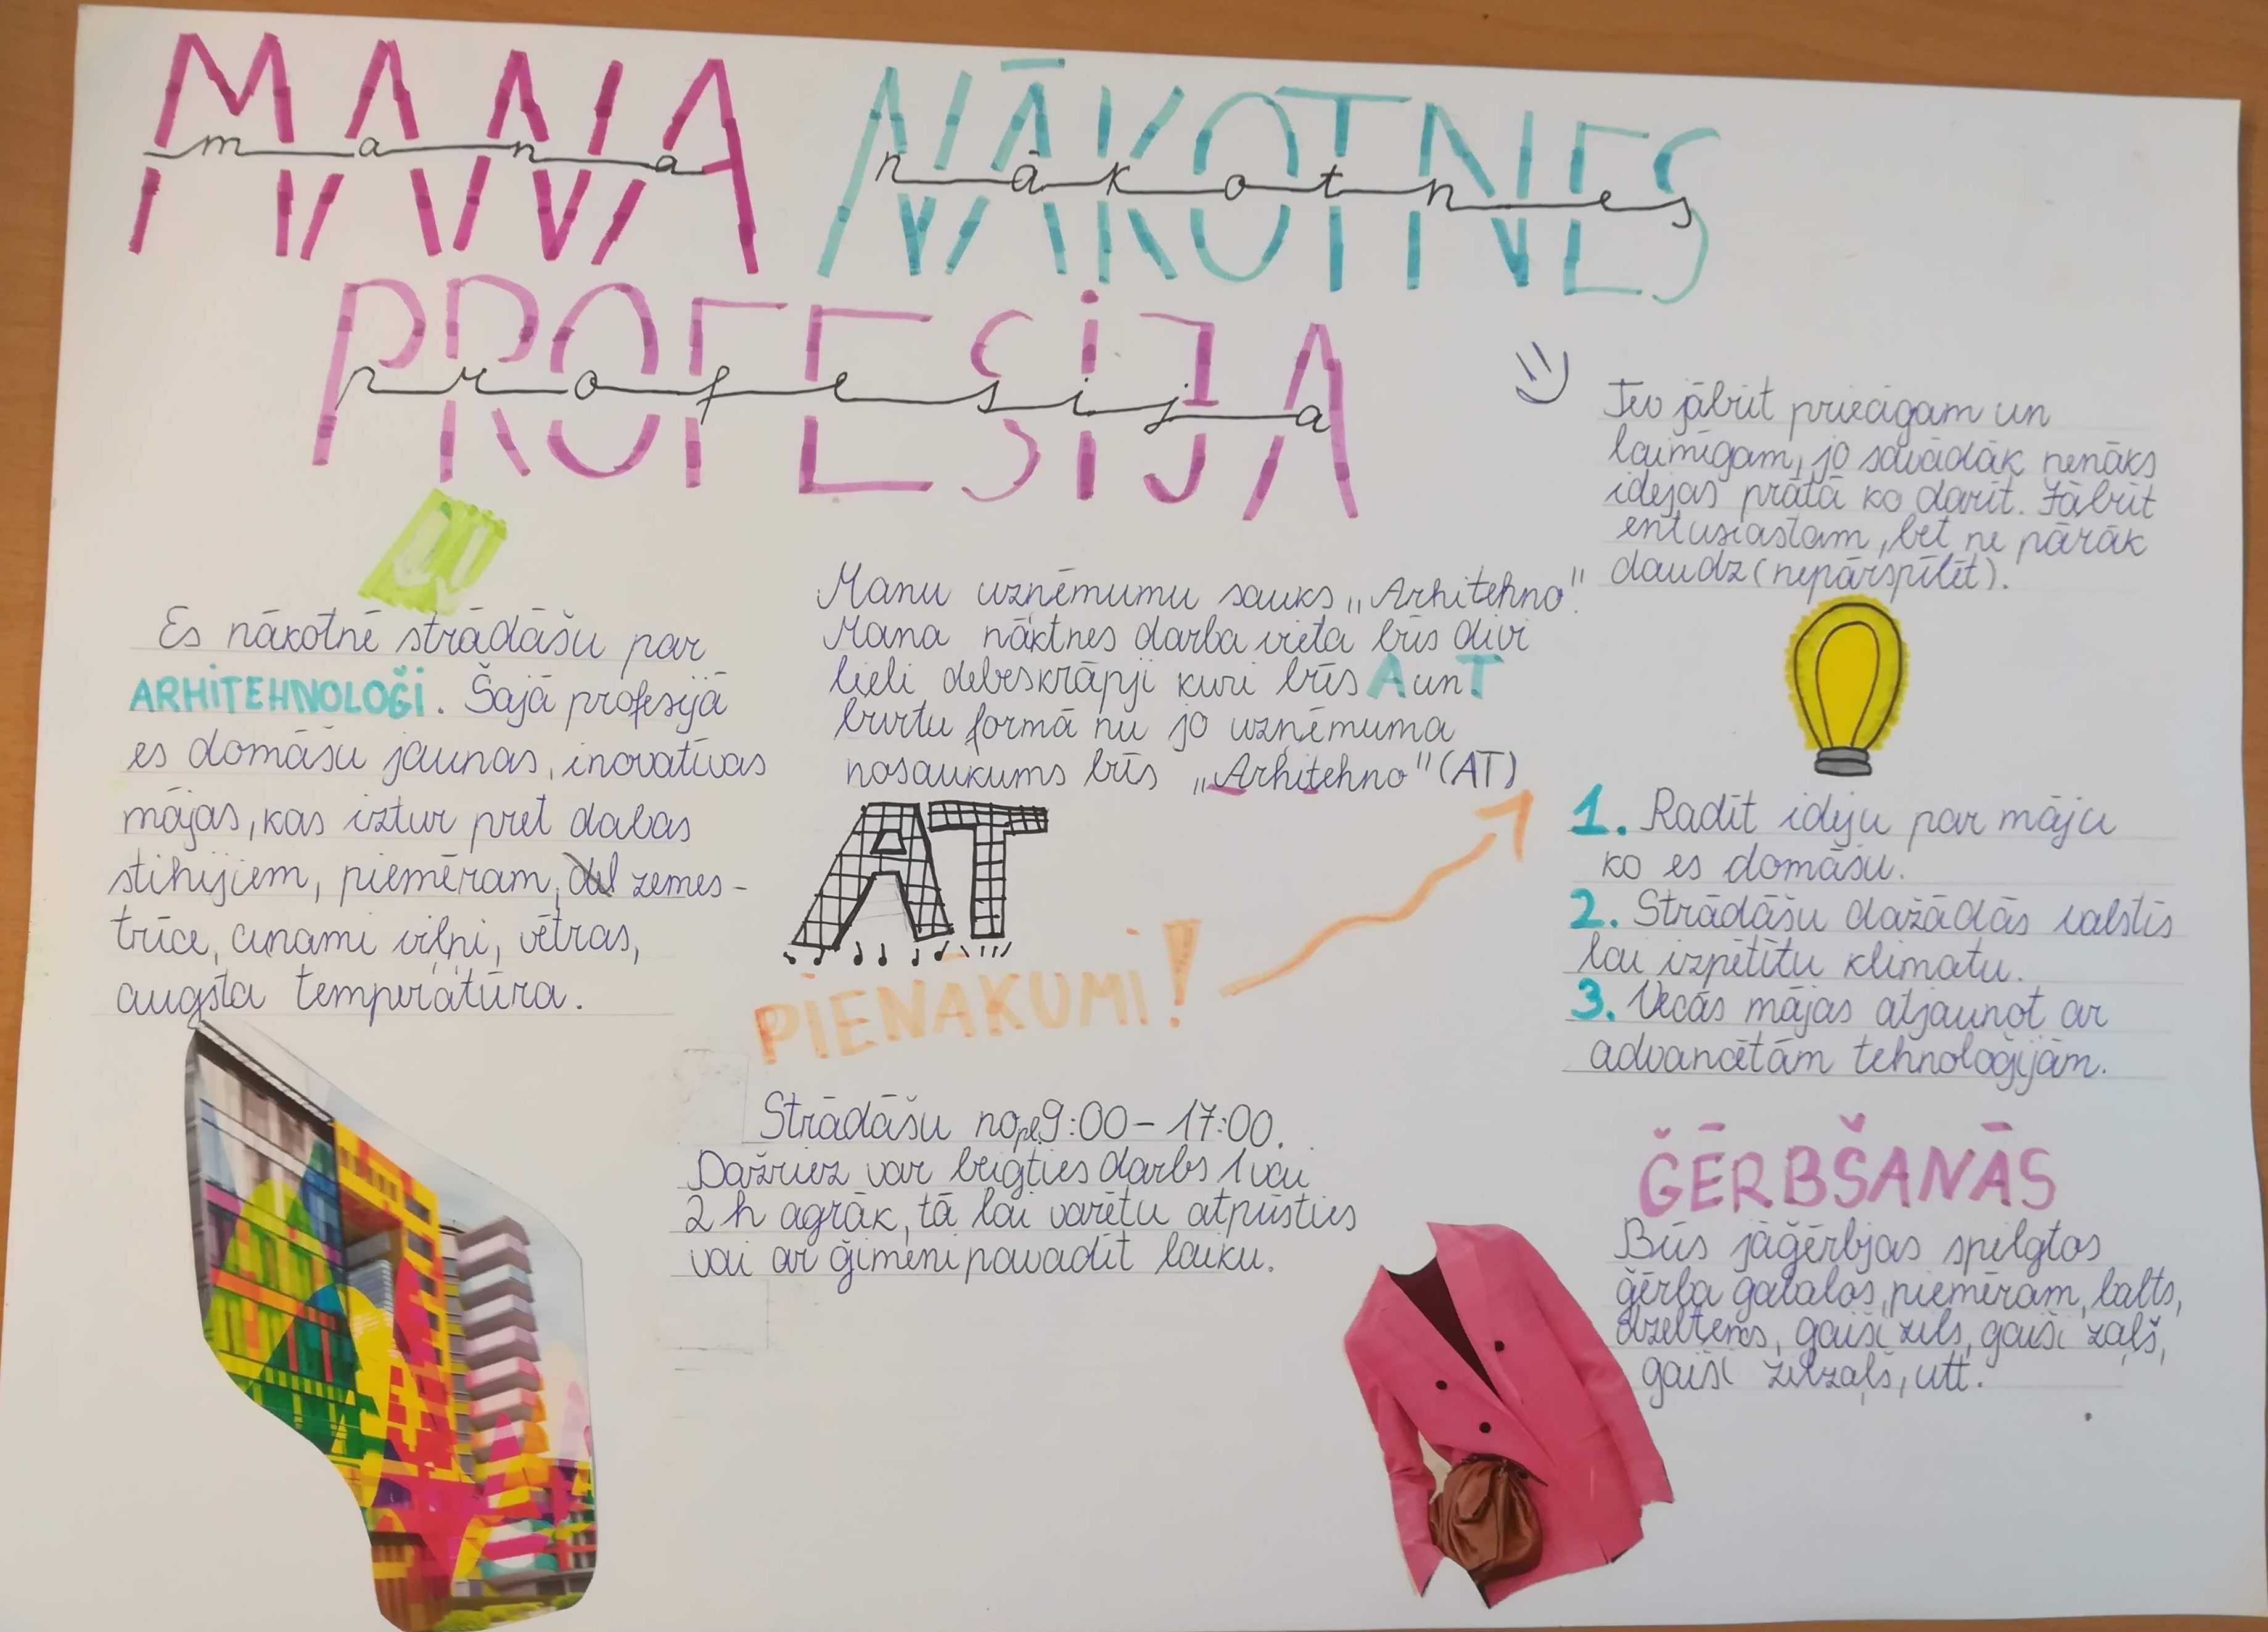 MANA NĀKOTNES
mana nākotnes
PROFESIJA
profesija
Es nākotnē strādāšu par
ARHITEHNOLOĢI. Šajā profesijā
es domāšu jaunas, inovatīvas
mājas, kas iztur pret dabas
stihijiem, piemēram, zemes-
trīce, cunami viļņi, vētras,
augsta temperatūra.
Manu uzņēmumu sauks „Arhitehno".
Mana nāktnes darba vieta būs divi
lieli debeskrāpji kuri būs A un T
burtu formā nu jo uzņēmuma
nosaukums būs „Arhitehno" (AT)
AT
PIENĀKUMI!
Strādāšu no pl. 9:00 – 17:00.
Dažriez var beigties darbs 1 vai
2 h agrāk, tā lai varētu atpūsties
vai ar ģimeni pavadīt laiku.
Tev jābūt priecīgam un
laimīgam, jo savādāk nenāks
idejas prātā ko darīt. Jābūt
entusiastam, bet ne pārāk
daudz (nepārspīlēt).
1. Radīt ideju par māju
ko es domāšu.
2. Strādāšu dažādās valstīs
lai izpētītu klimatu.
3. Vecās mājas atjaunot ar
advancētām tehnoloģijām.
ĢĒRBŠANĀS
Būs jāģērbjas spilgtos
ģērba gabalos, piemēram, balts,
dzeltens, gaiši zils, gaiši zaļš,
gaiši zilzaļš, utt.